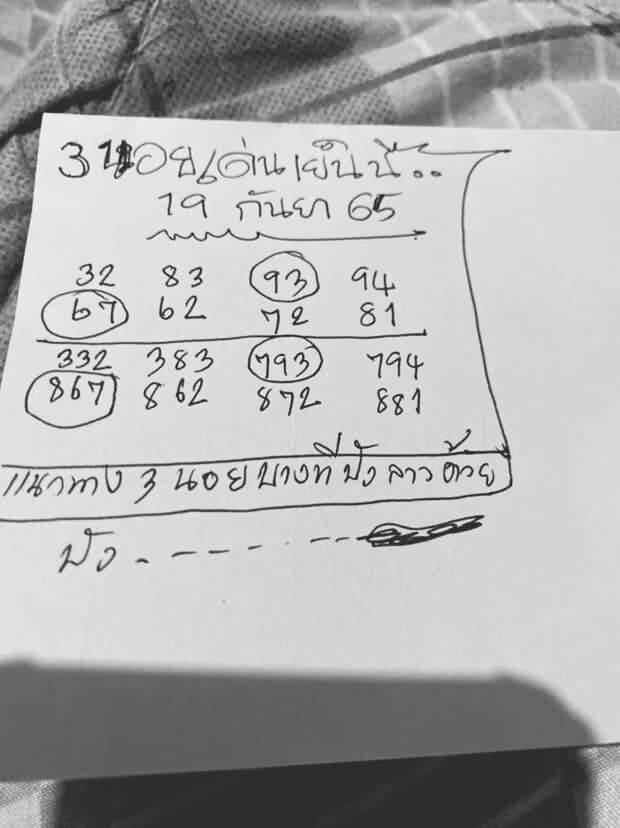 3 นอย เด่นเย็นนี้..
19 กันยา 65
32 83 93 94
67 62 72 81
332 383 793 794
867 862 872 881
แนวทาง 3 นอย บางที ปัง ลาว ด้วย
ปัง